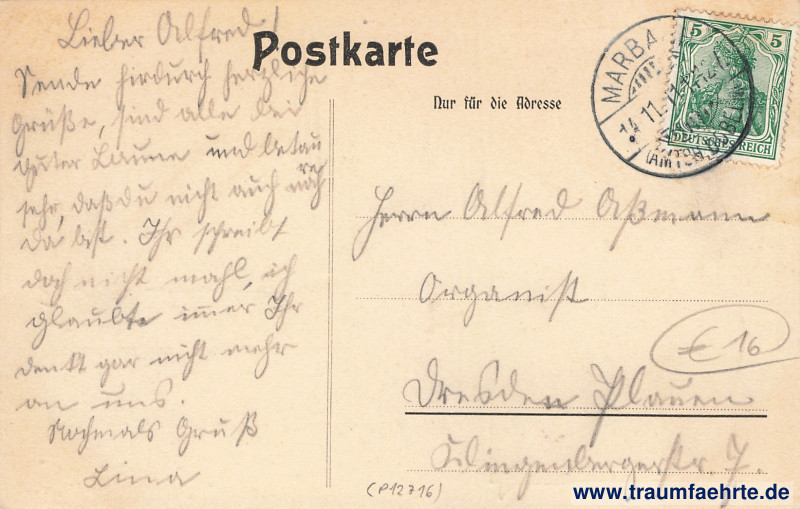 Postkarte
Nur für die Adresse
Lieber Alfred!
Sende hirdurch herzliche
Grüße, sind alle bei
guter Laune und betau
re
sehr, daß du nicht auch noch
da bist. Ihr schreibt
doch nicht mahl, ich
glaubte immer Ihr
denkt gar nicht mehr
an uns.
Nochmals Gruß
Lina
MARBA
14.11.
(AMTSH. DÖBELN)
5 5
DEUTSCHES REICH
Herrn Alfred Aßmann
Organist
€ 16
Dresden Plauen
Klingenbergerstr. 7.
(P12716)
www.traumfaehrte.de